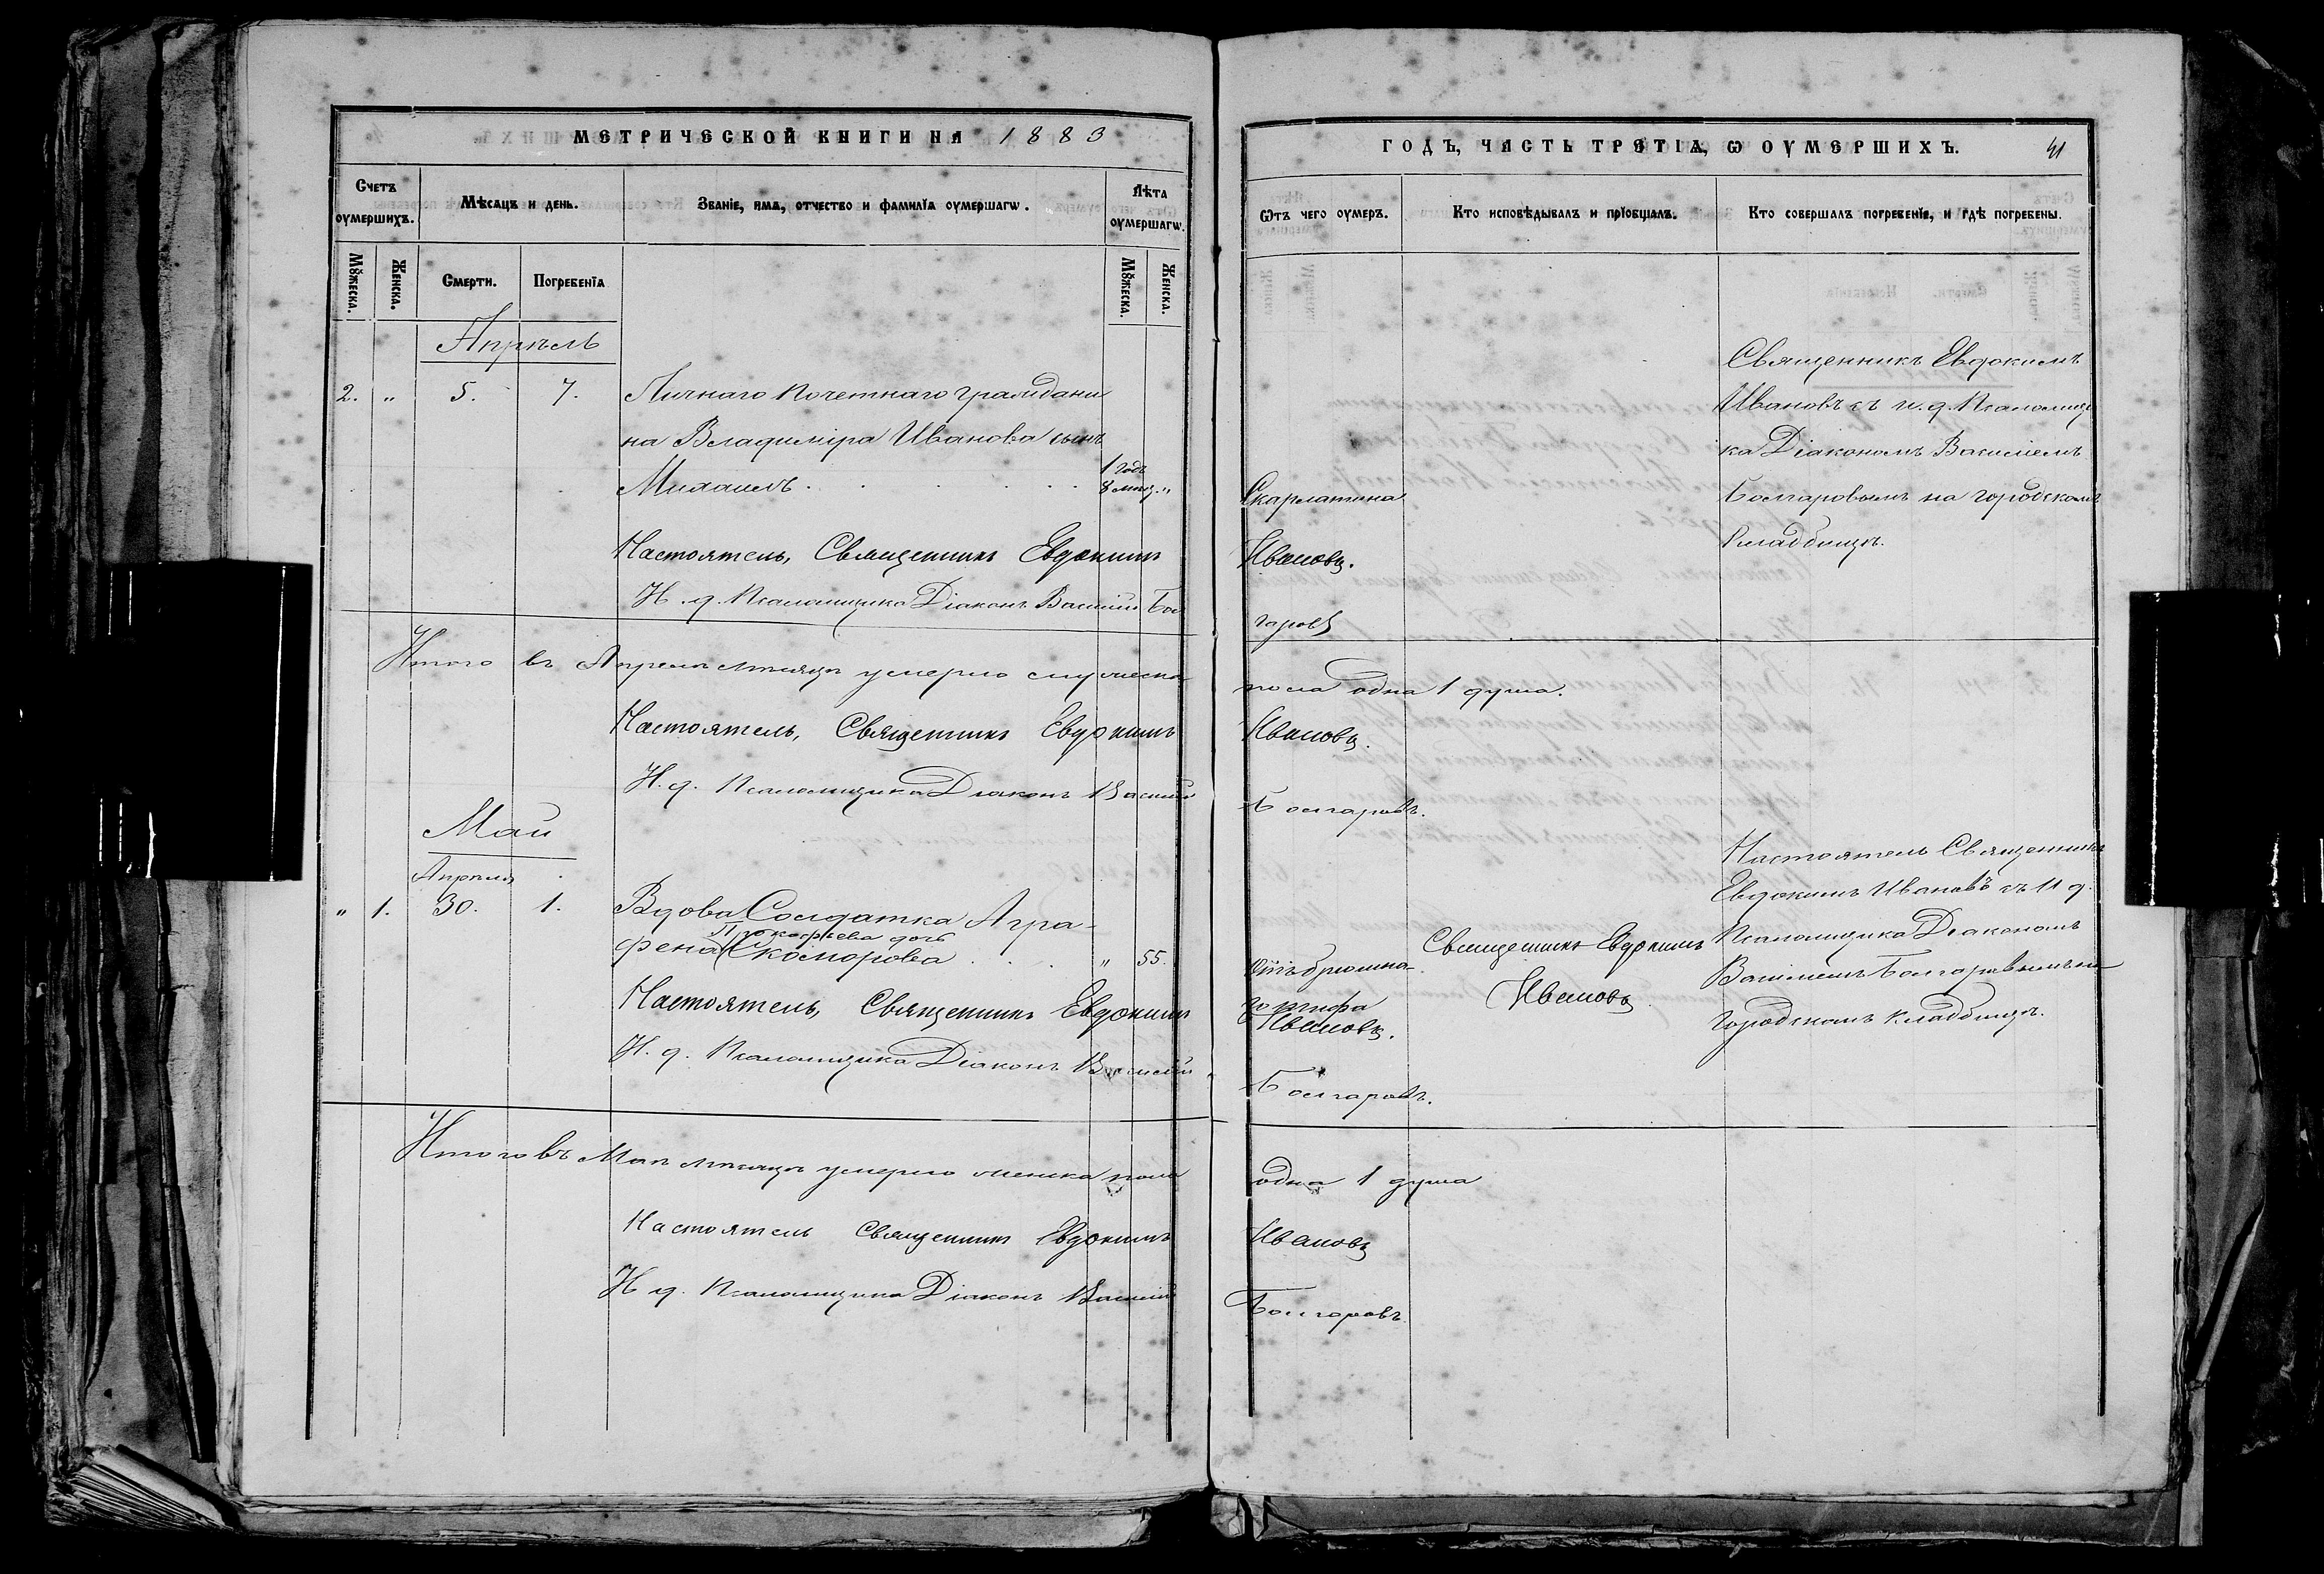 МЕТРИЧЕСКОЙ КНИГИ НА 1883
Счетъ оумершихъ.
Мѣсяцъ и день.
Званіе, имя, отчество и фамилїя оумершагѡ.
Лѣта оумершагѡ.
Мꙋжеска.
Женска.
Смерти.
Погребенїя
Мꙋжеска.
Женска.
Апрѣль
2. " 5. 7. Личнаго Почетнаго Граждани
на Владиміра Иванова сынъ
Михаилъ . . . . 1 годъ 8 мѣс. "
Настоятель, Священникъ Евдокимъ
И. д. Псаломщика Діаконъ Василій Бол
Итого въ Апрелѣ мѣсяцѣ умерло мужеска
Настоятель, Священникъ Евдокимъ
И. д. Псаломщика Діаконъ Василій
Май
Апрѣля
" 1. 30. 1. Вдова Солдатка Агра-
Прокофьева дочь
фена Скоморова . . . " 55.
Настоятель, Священникъ Евдокимъ
И. д. Псаломщика Діаконъ Василій
Итого въ Маѣ мѣсяцѣ умерло женска пола
Настоятель Священникъ Евдокимъ
И д. Псаломщика Діаконъ Василій
ГОДЪ, ЧАСТЬ ТРЕТІѦ, Ѡ ОУМЕРШИХЪ.
41
Ѿтъ чего оумеръ.
Кто исповѣдывалъ и прїобщалъ.
Кто совершалъ погребенїе, и гдѣ погребены.
Священникъ Евдокимъ
Ивановъ съ и. д. Псаломщи
ка Діакономъ Василіемъ
Скарлатина
Болгаровымъ на городскомъ
кладбищѣ.
Ивановъ.
гаровъ
пола одна 1 душа.
Ивановъ.
Болгаровъ.
Настоятель Священникъ
Евдокимъ Ивановъ съ И д.
Псаломщика Діакономъ
Василіемъ Болгаровымъ на
городскомъ кладбищѣ.
Священникъ Евдокимъ
Ивановъ
Отъ брюшна-
го тифа
Ивановъ.
Болгаровъ.
одна 1 душа
Ивановъ
Болгаровъ